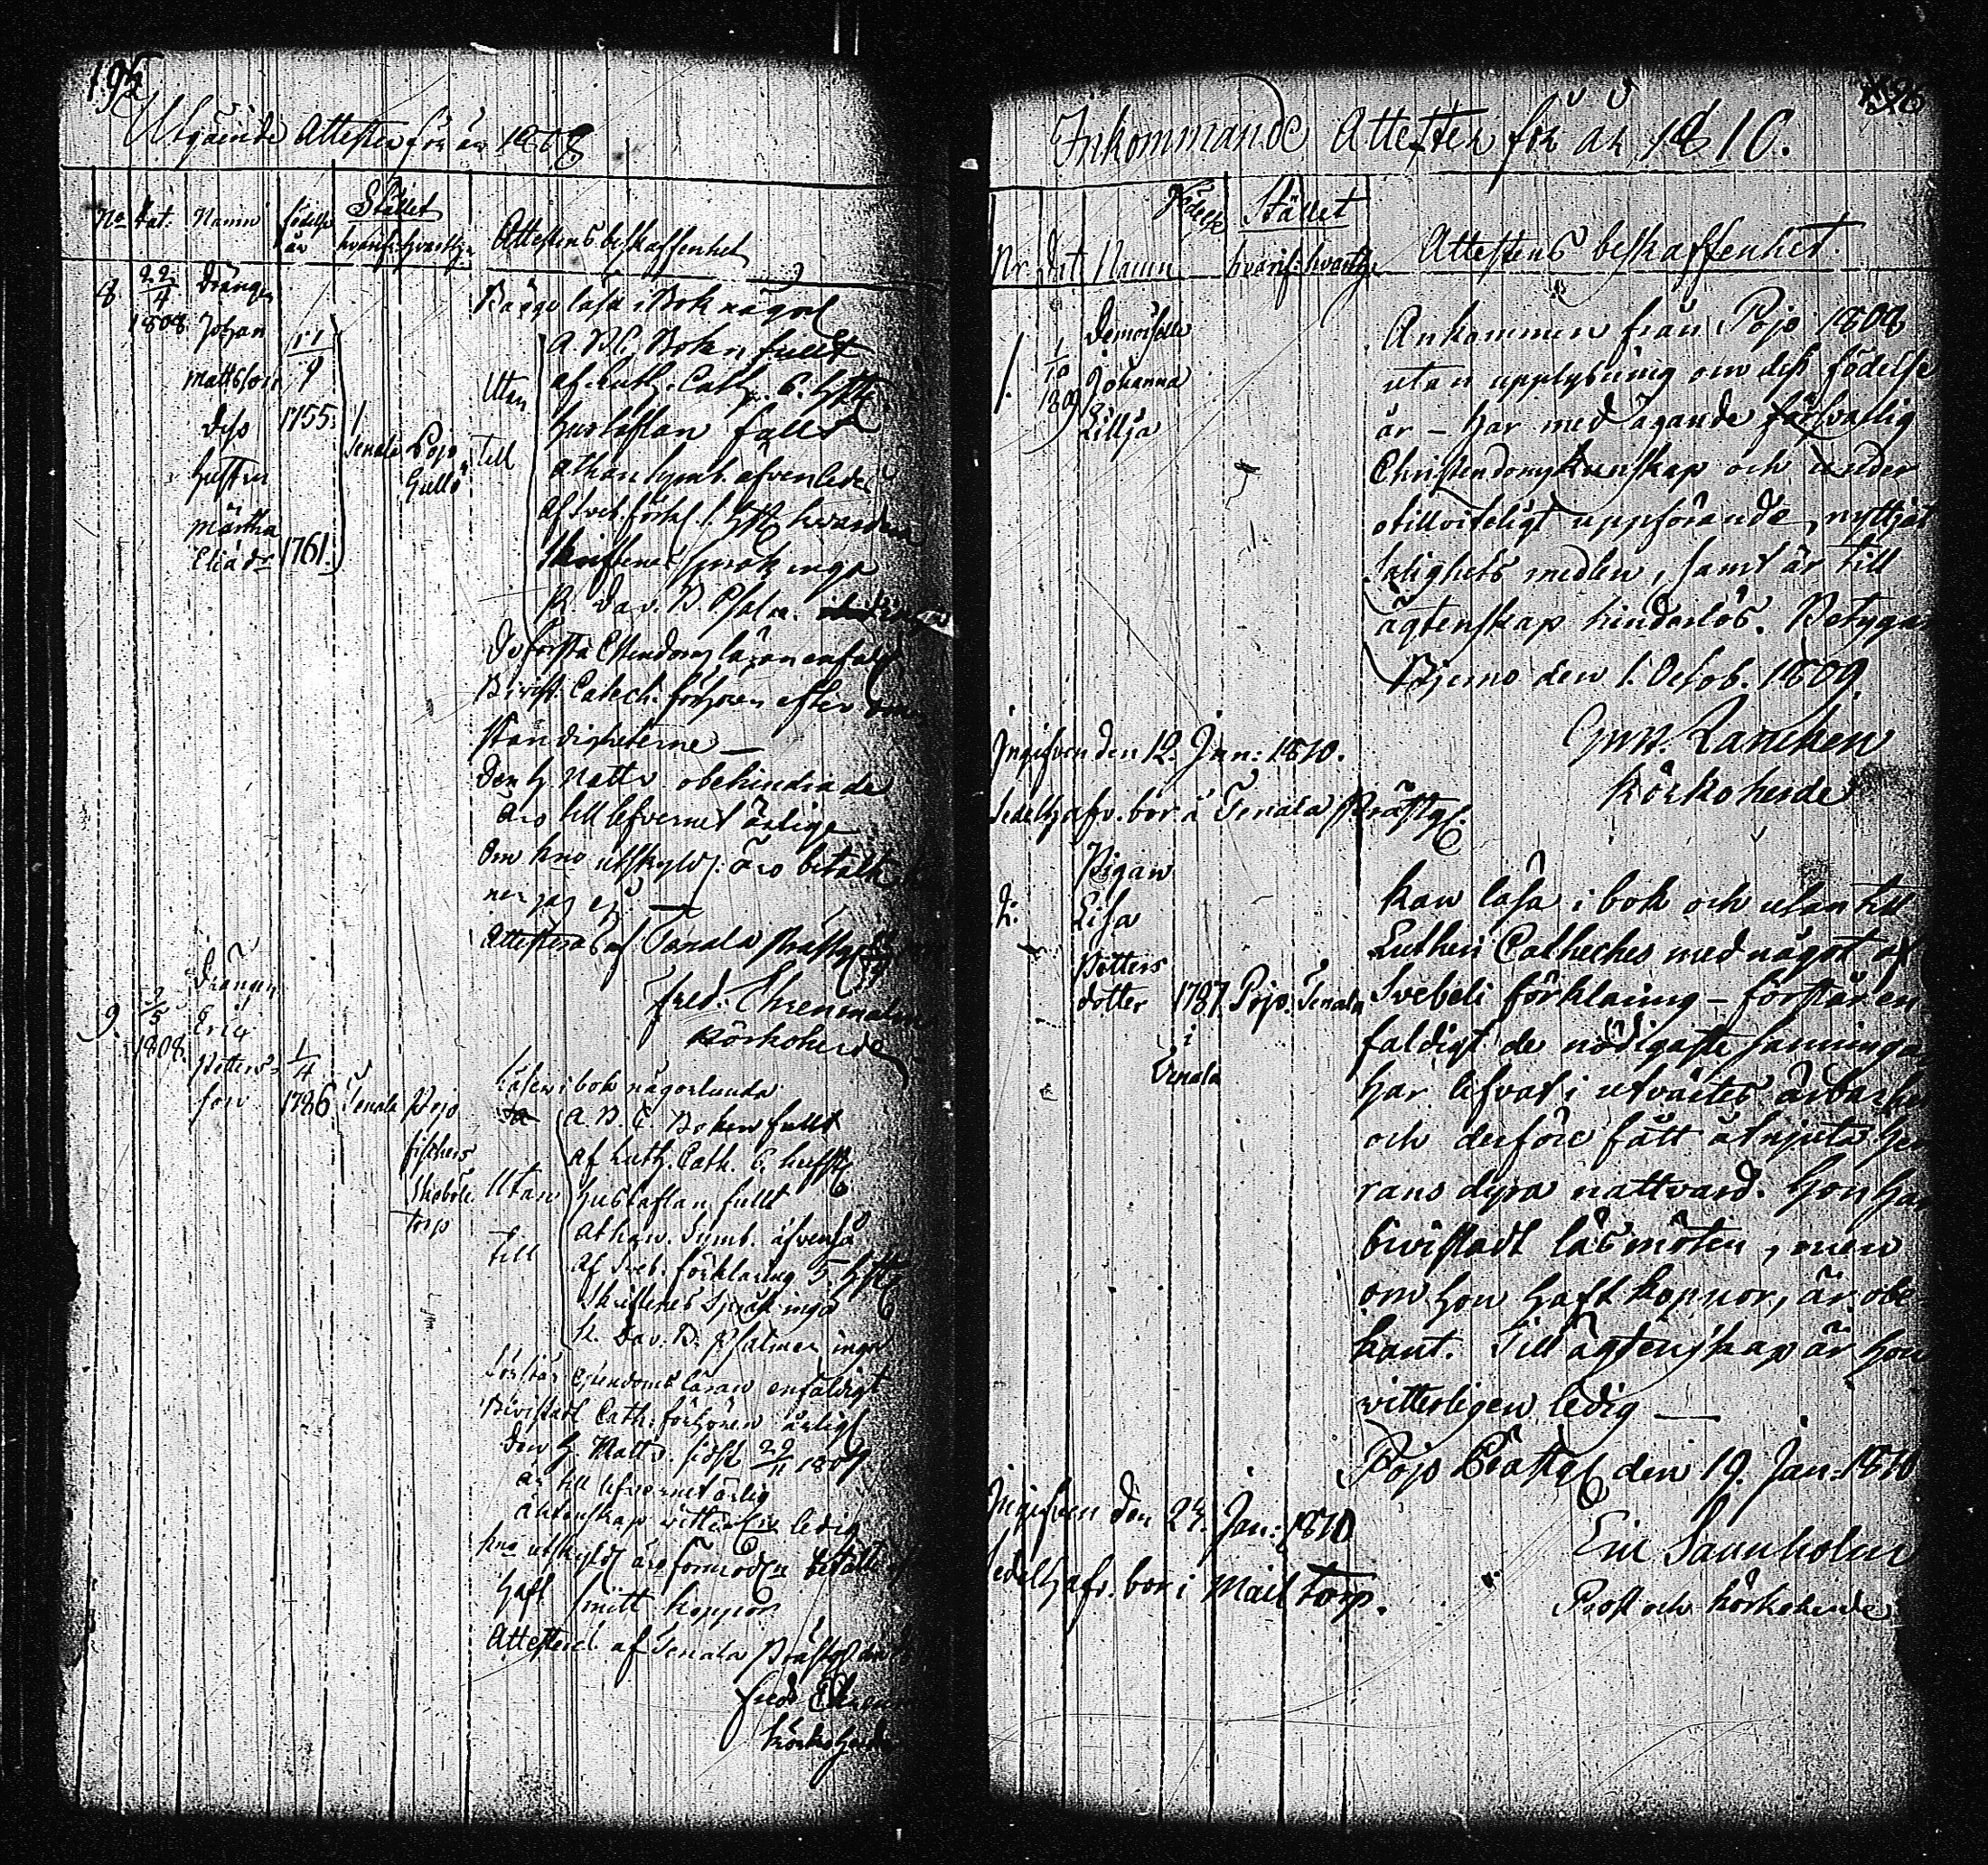 Utgående Attester för år 1808
No Dat. Namn födelse år Stället hvarifr. hvarthän Attestens beskaffenhet
8 22/4 1808 Drängen Johan Mattsson 11/9 1755
Dess hustru Märtha Eliæ dr 1761
Tenala Pojo Gullö
läsa i Bok något
Utan till
A. B. C. Boken fullt
af Luth. Cath. 6. hftr
Hustaflan fullt
Athan. Symb. äfvenledes
af Sveb. förkl. 1. hftr hvardera
Skriftenes språk inga
K. Dav. B. Psalm.
De förstå Chrendoms läran enfald.
Bivist. Catech. förhören efter om-
ständigheterne —
Den H. Nattv. obehindrade
äro till lefvernet ärlige
Om krono utskyld. äro betalte
ner jag ej. —
Attesteras af Tenala Prästg.
Fred. Ehrenmalm
Körkoherde
9. 2/5 1808. Drängen Eric Petters-
son 1/4 1786 Tenala Pojo
fiskars
torp
Läser i bok någorlunda
Utan till
A. B. C. Boken fullt
af Luth. Cath. 6. hufst.
Hustaflan fullt
Athan. Symb. äfvenså
af Sveb. förklaring 5. hftr
Skriftenes Språk inga
K. Dav. B. Psalmer inga
Förstår Chrendoms läran enfaldigt
Bivistadt Cath. förhören årlig.
Den H. Nattv. sidst 29/11 1807
är till lefvernet ärlig
äktenskap witterl. ledig
krno utskyld. äro förmodl. betalte
Haft smitt koppor
Attesterad af Tenala Prästg. den
Fred. Ehrenm
Körkoherde
Inkommande Attester för år 1810.
Nr. dat Namn Födelse Stället hvarif: hvarthän Attestens beskaffenhet.
1. 1/10 1809 Demoiselle
Johanna
Lillja
Ankommen från Pojo 1808
utan upplysning om dess födelse
år – har med ägande försvarlig
Christendoms kunskap och under
otillviteligt uppförande, nyttjat
Salighets medlen, samt är till
ägtenskap hinderlös. Betygar
Bjerno den 1. Octob. 1809.
Gust. Ranchen
Körkoherde
Ingifven den 12. Jan: 1810.
Sedelhafv. bor å Tenala Prästg.
2. Pigan
Lisa
Petters
dotter 1787 Pojo. Tenala
i
Tenala
Kan läsa i bok och utan till
Lutheri Catheches med något af
Svebeli förklaring – förstår en
faldigt de nödigaste sanningar
har lefvat i utvärtes ärbarhet
och derföre fått åtnjuta Her
rans dyra nattvard. Hon har
bivistadt läsmöten, men
om hon haft koppor, är obe-
kant. Till ägtenskap är hon
witterligen ledig —
Pojo Prästg. den 19. Jan: 1810
Eric Sannholm
Prost och Körkoherde
Ingifven den 24. Jan: 1810
Sedelhafv. bor i Mailtorp.